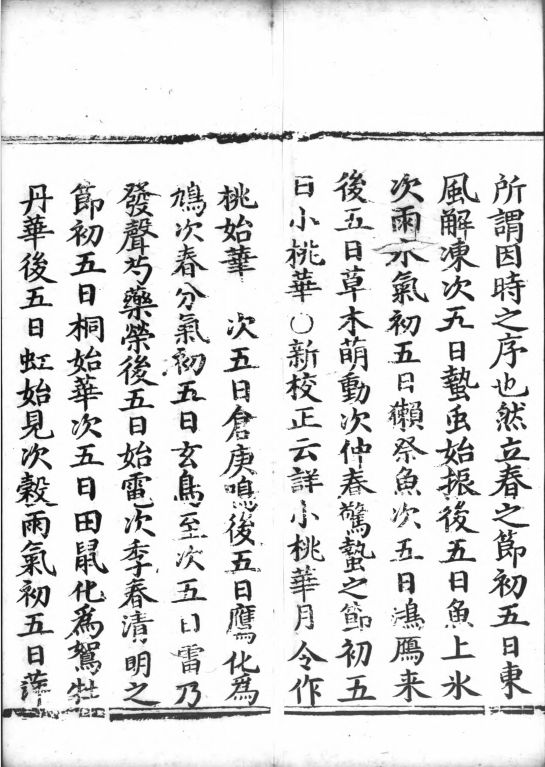 所謂因時之序也然立春之節初五日東
風解凍次五日蟄虫始振後五日魚上氷
次雨水氣初五日獺祭魚次五日鴻鴈来
後五日草木萌動次仲春驚蟄之節初五
日小桃華○新校正云詳小桃華月令作
桃始華 次五日倉庚鳴後五日鷹化爲
鳩次春分氣初五日玄鳥至次五日雷乃
發聲芍藥榮後五日始電次季春清明之
節初五日桐始華次五日田鼠化爲鴽牡
丹華後五日虹始見次穀雨氣初五日萍